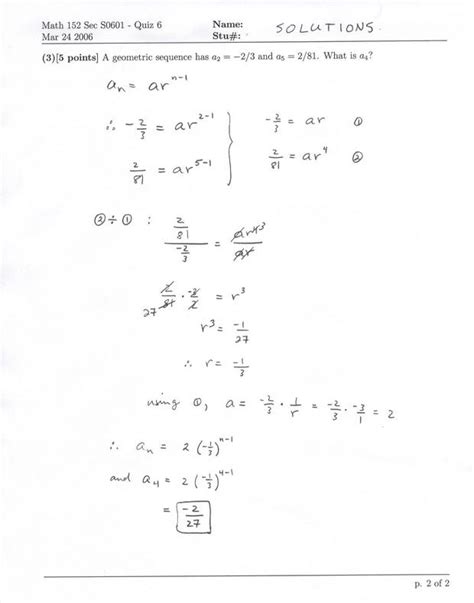 Math 152 Sec S0601 - Quiz 6 Name: SOLUTIONS.
Mar 24 2006 Stu#:
(3)[5 points] A geometric sequence has a₂ = −2/3 and a₅ = 2/81. What is a₄?
aₙ = ar^(n-1)
∴ -2/3 = ar^(2-1) } -2/3 = ar ①
2/81 = ar^(5-1) 2/81 = ar^4 ②
② ÷ ① : (2/81)/(-2/3) = ar^3/ar
2/81 · -3/2 = r³
27
r³ = -1/27
∴ r = -1/3
using ①, a = -2/3 · 1/r = -2/3 · -3/1 = 2
∴ aₙ = 2 (-1/3)^(n-1)
and a₄ = 2 (-1/3)^(4-1)
= -2/27
p. 2 of 2